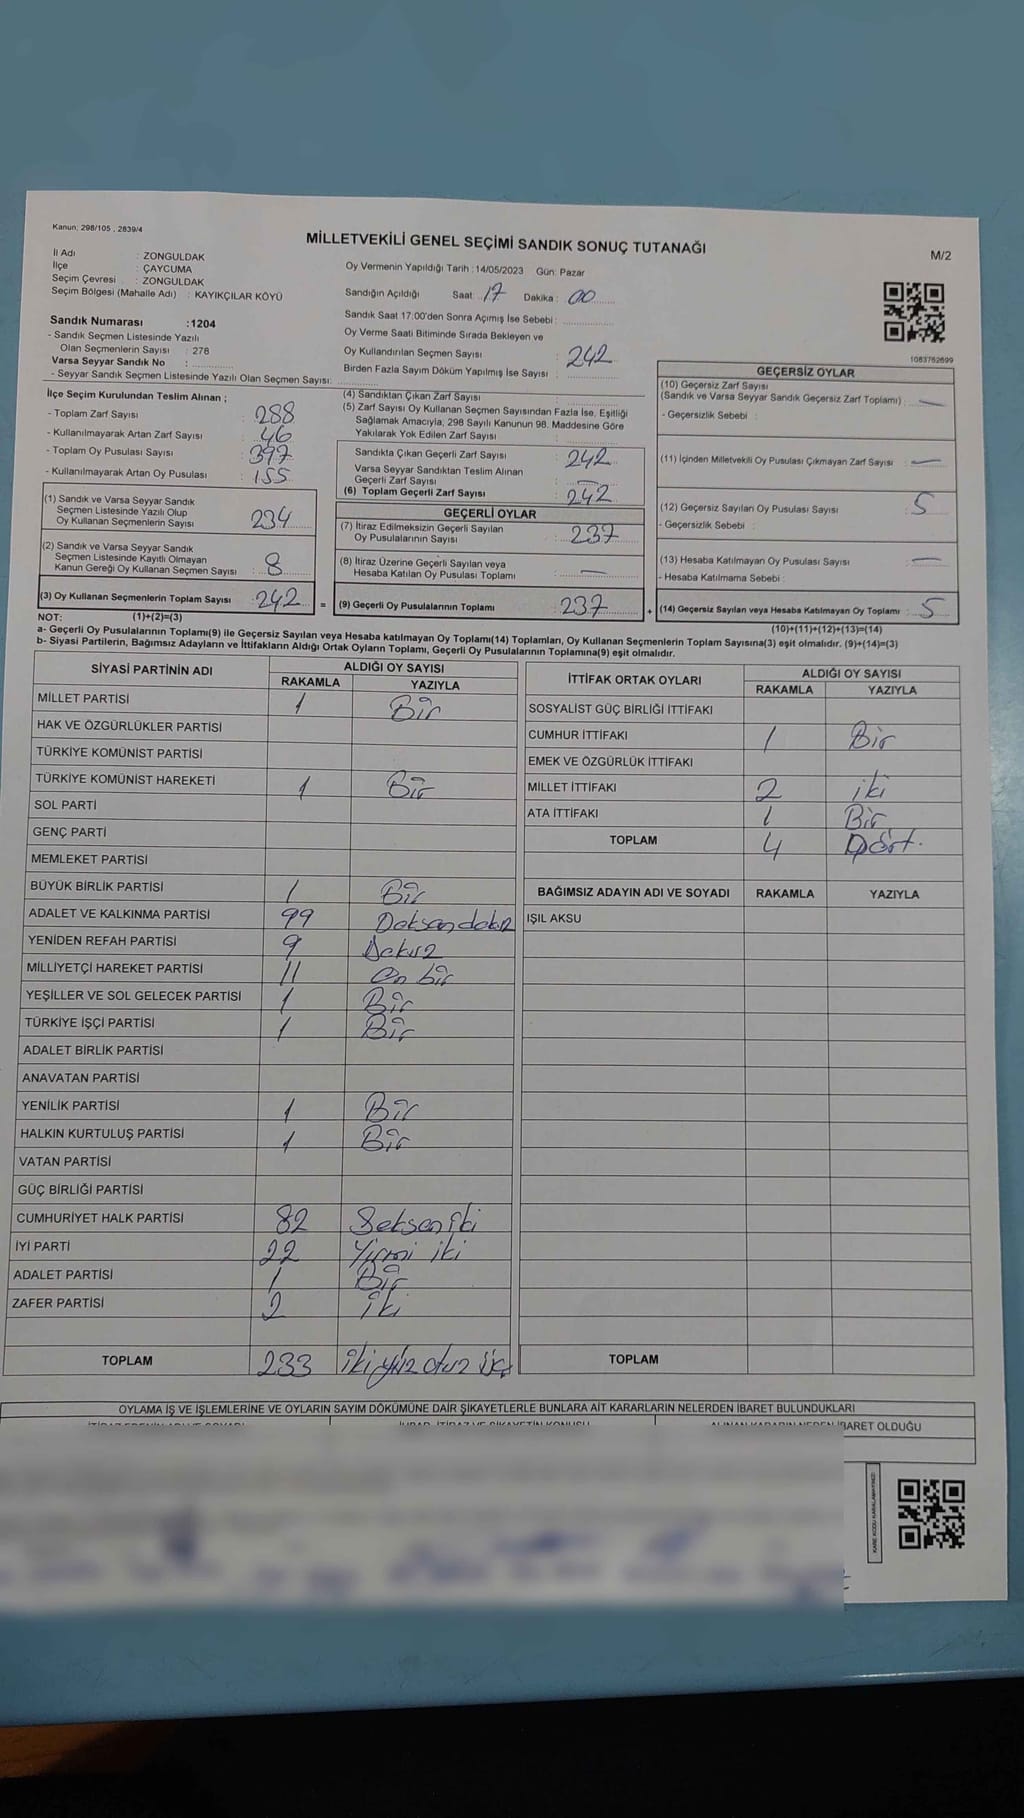 Kanun; 298/105 , 2839/4
MİLLETVEKİLİ GENEL SEÇİMİ SANDIK SONUÇ TUTANAĞI
M/2
İl Adı : ZONGULDAK
İlçe : ÇAYCUMA
Seçim Çevresi : ZONGULDAK
Seçim Bölgesi (Mahalle Adı) : KAYIKÇILAR KÖYÜ
Sandık Numarası :1204
- Sandık Seçmen Listesinde Yazılı
Olan Seçmenlerin Sayısı : 276
Varsa Seyyar Sandık No :
- Seyyar Sandık Seçmen Listesinde Yazılı Olan Seçmen Sayısı:
Oy Vermenin Yapıldığı Tarih : 14/05/2023 Gün: Pazar
Sandığın Açıldığı Saat 17 Dakika : 00
Sandık Saat 17:00'den Sonra Açımış İse Sebebi :
Oy Verme Saati Bitiminde Sırada Bekleyen ve
Oy Kullandırılan Seçmen Sayısı : 242
Birden Fazla Sayım Döküm Yapılmış İse Sayısı :
1083762699
İlçe Seçim Kurulundan Teslim Alınan ;
- Toplam Zarf Sayısı : 288
- Kullanılmayarak Artan Zarf Sayısı : 46
- Toplam Oy Pusulası Sayısı : 397
- Kullanılmayarak Artan Oy Pusulası : 155
(1) Sandık ve Varsa Seyyar Sandık
Seçmen Listesinde Yazılı Olup
Oy Kullanan Seçmenlerin Sayısı : 234
(2) Sandık ve Varsa Seyyar Sandık
Seçmen Listesinde Kayıtlı Olmayan
Kanun Gereği Oy Kullanan Seçmen Sayısı : 8
(3) Oy Kullanan Seçmenlerin Toplam Sayısı : 242 =
(4) Sandıktan Çıkan Zarf Sayısı :
(5) Zarf Sayısı Oy Kullanan Seçmen Sayısından Fazla İse, Eşitliği
Sağlamak Amacıyla, 298 Sayılı Kanunun 98. Maddesine Göre
Yakılarak Yok Edilen Zarf Sayısı :
Sandıkta Çıkan Geçerli Zarf Sayısı : 242
Varsa Seyyar Sandıktan Teslim Alınan
Geçerli Zarf Sayısı : —
(6) Toplam Geçerli Zarf Sayısı : 242
GEÇERLİ OYLAR
(7) İtiraz Edilmeksizin Geçerli Sayılan
Oy Pusulalarının Sayısı : 237
(8) İtiraz Üzerine Geçerli Sayılan veya
Hesaba Katılan Oy Pusulası Toplamı : —
(9) Geçerli Oy Pusulalarının Toplamı : 237 +
GEÇERSİZ OYLAR
(10) Geçersiz Zarf Sayısı
(Sandık ve Varsa Seyyar Sandık Geçersiz Zarf Toplamı) : —
- Geçersizlik Sebebi :
(11) İçinden Milletvekili Oy Pusulası Çıkmayan Zarf Sayısı : —
(12) Geçersiz Sayılan Oy Pusulası Sayısı : 5
- Geçersizlik Sebebi :
(13) Hesaba Katılmayan Oy Pusulası Sayısı : —
- Hesaba Katılmama Sebebi :
(14) Geçersiz Sayılan veya Hesaba Katılmayan Oy Toplamı : 5
NOT: (1)+(2)=(3)
(10)+(11)+(12)+(13)=(14)
a- Geçerli Oy Pusulalarının Toplamı(9) ile Geçersiz Sayılan veya Hesaba katılmayan Oy Toplamı(14) Toplamları, Oy Kullanan Seçmenlerin Toplam Sayısına(3) eşit olmalıdır. (9)+(14)=(3)
b- Siyasi Partilerin, Bağımsız Adayların ve İttifakların Aldığı Ortak Oyların Toplamı, Geçerli Oy Pusulalarının Toplamına(9) eşit olmalıdır.
SİYASİ PARTİNİN ADI ALDIĞI OY SAYISI
RAKAMLA YAZIYLA
MİLLET PARTİSİ 1 Bir
HAK VE ÖZGÜRLÜKLER PARTİSİ
TÜRKİYE KOMÜNİST PARTİSİ
TÜRKİYE KOMÜNİST HAREKETİ 1 Bir
SOL PARTİ
GENÇ PARTİ
MEMLEKET PARTİSİ
BÜYÜK BİRLİK PARTİSİ 1 Bir
ADALET VE KALKINMA PARTİSİ 99 Doksandokuz
YENİDEN REFAH PARTİSİ 9 Dokuz
MİLLİYETÇİ HAREKET PARTİSİ 11 On bir
YEŞİLLER VE SOL GELECEK PARTİSİ 1 Bir
TÜRKİYE İŞÇİ PARTİSİ 1 Bir
ADALET BİRLİK PARTİSİ
ANAVATAN PARTİSİ
YENİLİK PARTİSİ 1 Bir
HALKIN KURTULUŞ PARTİSİ 1 Bir
VATAN PARTİSİ
GÜÇ BİRLİĞİ PARTİSİ
CUMHURİYET HALK PARTİSİ 82 Seksen iki
İYİ PARTİ 22 Yirmi iki
ADALET PARTİSİ 1 Bir
ZAFER PARTİSİ 2 iki
TOPLAM 233 ikiyüz otuz üç
İTTİFAK ORTAK OYLARI ALDIĞI OY SAYISI
RAKAMLA YAZIYLA
SOSYALİST GÜÇ BİRLİĞİ İTTİFAKI
CUMHUR İTTİFAKI 1 Bir
EMEK VE ÖZGÜRLÜK İTTİFAKI
MİLLET İTTİFAKI 2 iki
ATA İTTİFAKI 1 Bir
TOPLAM 4 Dört.
BAĞIMSIZ ADAYIN ADI VE SOYADI RAKAMLA YAZIYLA
IŞIL AKSU
TOPLAM
OYLAMA İŞ VE İŞLEMLERİNE VE OYLARIN SAYIM DÖKÜMÜNE DAİR ŞİKAYETLERLE BUNLARA AİT KARARLARIN NELERDEN İBARET BULUNDUKLARI
İTİRAZ EDENİN ADI VE SOYADI İHBAR, İTİRAZ VE ŞİKAYETİN KONUSU ALINAN KARARIN NEDEN İBARET OLDUĞU
KARE KODU KARALAMAYINIZ!